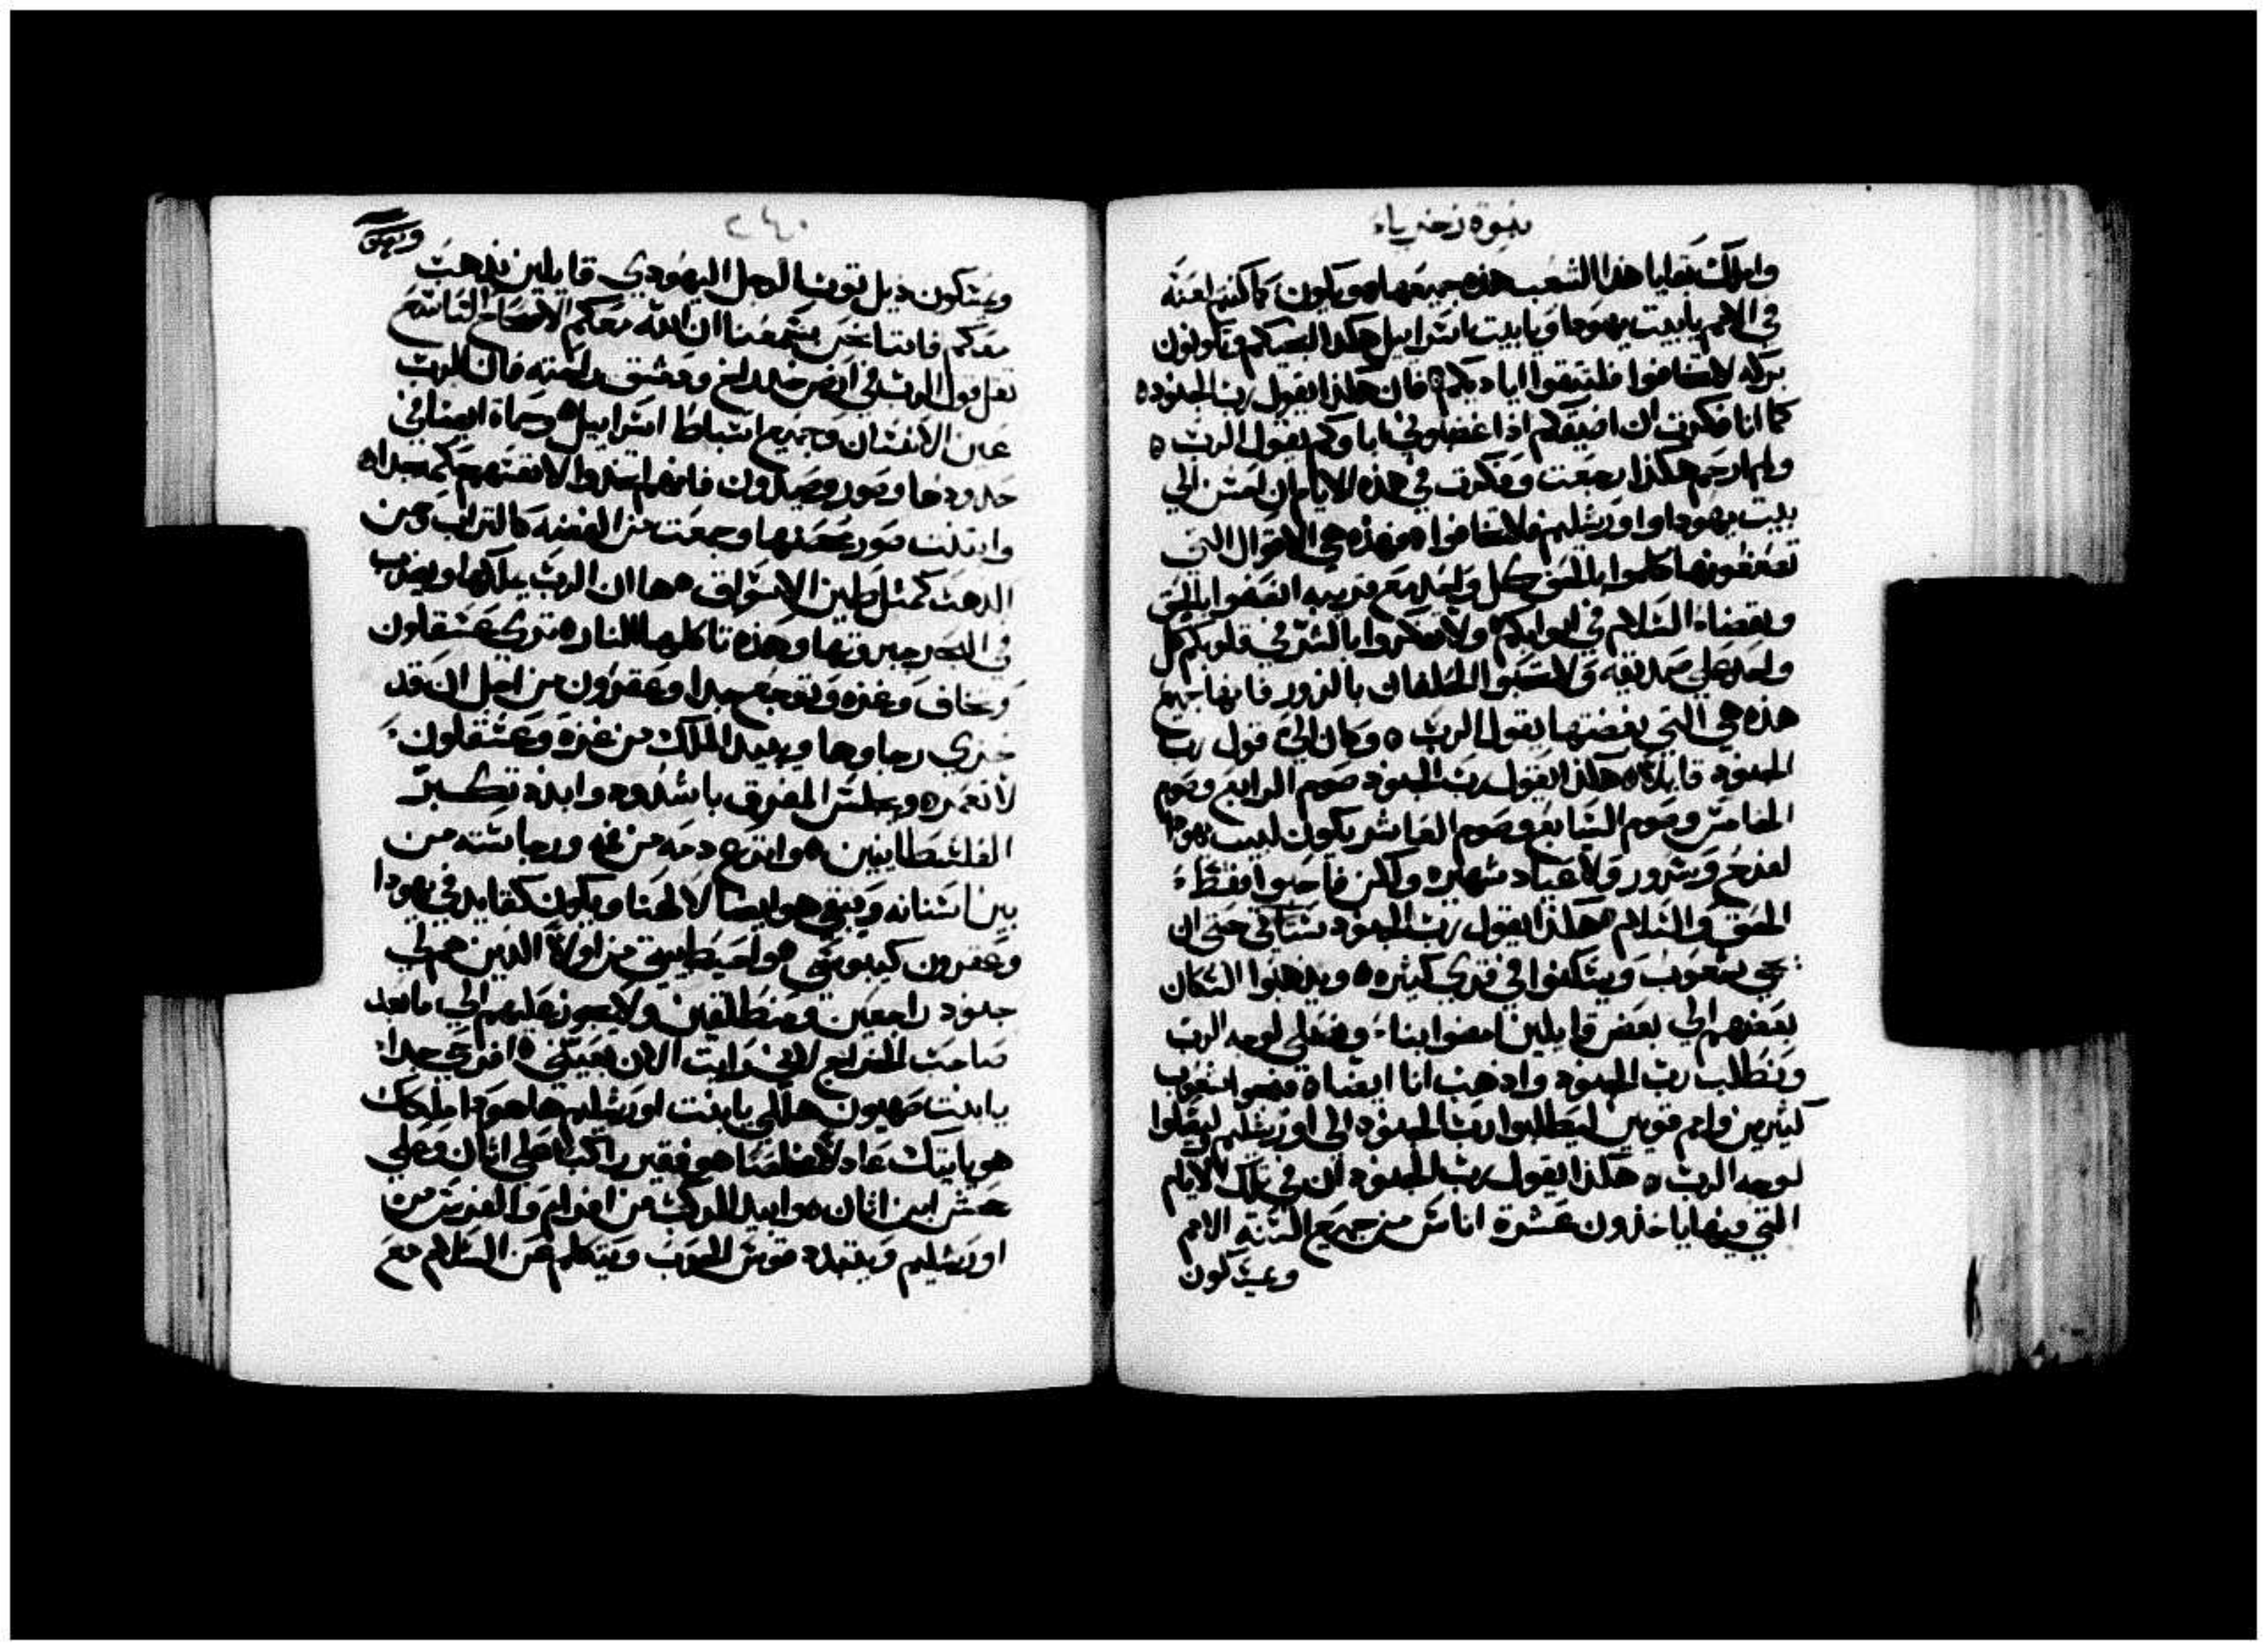 نبوة زخرياء
واملك بقايا هذا الشعب هذه جميعها هو ويكون كما كنتم لعنة
في الامم يا بيت يهودا ويا بيت اسرائيل هكذا انجيكم وتكونون
بركه لا تخافوا فلتتقوا اياديكم فان هكذا يقول رب الجنوده
كما انا فكرت ان اضيقكم اذا اغضبوني اباوكم يقول الرب ه
ولم ارحم هكذا رجعت وفكرت في هذه الايام ان احسن الي
بيت يهودا واورشليم فلا تخافواه فهذه هي الاقوال التي
تصنعونها كلموا بالحق كل واحد مع قريبه القضوا بالحق
وبقضاء السلام في ابوابكم ولا تفكروا بالشر في قلوبكم كل
واحد علي صديقه ولا تحبوا الحلفان بالزور فانها جميع
هذه هي التي بغضتها يقول الرب ه وكان الي قول رب
الجنود قايلاه هكذا يقول رب الجنود صوم الرابع وصوم
الخامس وصوم السابع وصوم العاشر يكون لبيت يهودا
لفرح وسرور ولاعياد شهيره ولكن فاحبوا فقط
الحق والسلام هكذا يقول رب الجنود ستاتي حتي ان
تجي شعوب ويسكنوا في قري كثيره ه ويذهبوا السكان
بعضهم الي بعض قايلين امضوا بنا ونصلي لوجه الرب
ونطلب رب الجنود واذهب انا ايضاه فتجوا شعوب
كثيرين وامم قويين ليطلبوا رب الجنود الي اورشليم ليصلوا
لوجه الرب ه هكذا يقول رب الجنود ان في تلك الايام
التي فيها ياخذون عشرة اناس من جميع السنة الامم
ويمسكون
٢٤٠
ويمسكون ذيل ثوب الرجل اليهودي قايلين نذهب
معكم فاننا نحن سمعنا ان الله معكم الاصحاح التاسع
ثقل قول الرب في ارض خدراخ ودمشق راحته فان للرب
عين الانسان وجميع اسباط اسرائيل ه وحماة ايضا في
حدودها وصور وصيدون فانهم اتخذوا لانفسهم حكمه جداه
وابتنت صور حصنها وجمعت من الفضه كالتراب ومن
الدهب كمثل طين الاسواق هها ان الرب يملكها ويضرب
في البحر جبروتها وهذه تاكلها الناره تري عسقلون
وتخاف وغزه وتتوجع جدا وعقرون من اجل ان قد
خزي رجاوها ويبيد الملك من غزه وعسقلون
لا تعمره ويجلس المفرق باشدود وابدد تكبر
الفلسطانيين ه وانزع دمه من فمه ورجاسته من
بين اسنانه ويبقي هو ايضا لالهنا ويكون كقايد في يهودا
وعقرون كيبوسي هواحيط ببيتي من اولاء الذين هم لي
جنود راجعين ومنطلقين ولا يجوز عليهم الي ما بعد
صاحب الخراج لاني رايت الان بعينيه افرحي جدا
يا ابنت صهيون هللي يا بنت اورشليم ها هوذا ملكك
هو ياتيك عادلا مخلصا هو فقير راكبا علي اتان وعلي
جحش ابن اتان ه وابيد المركب من افرام والفرس من
اورشليم ويبتدد قوس الحرب ويتكلم عن السلام مع